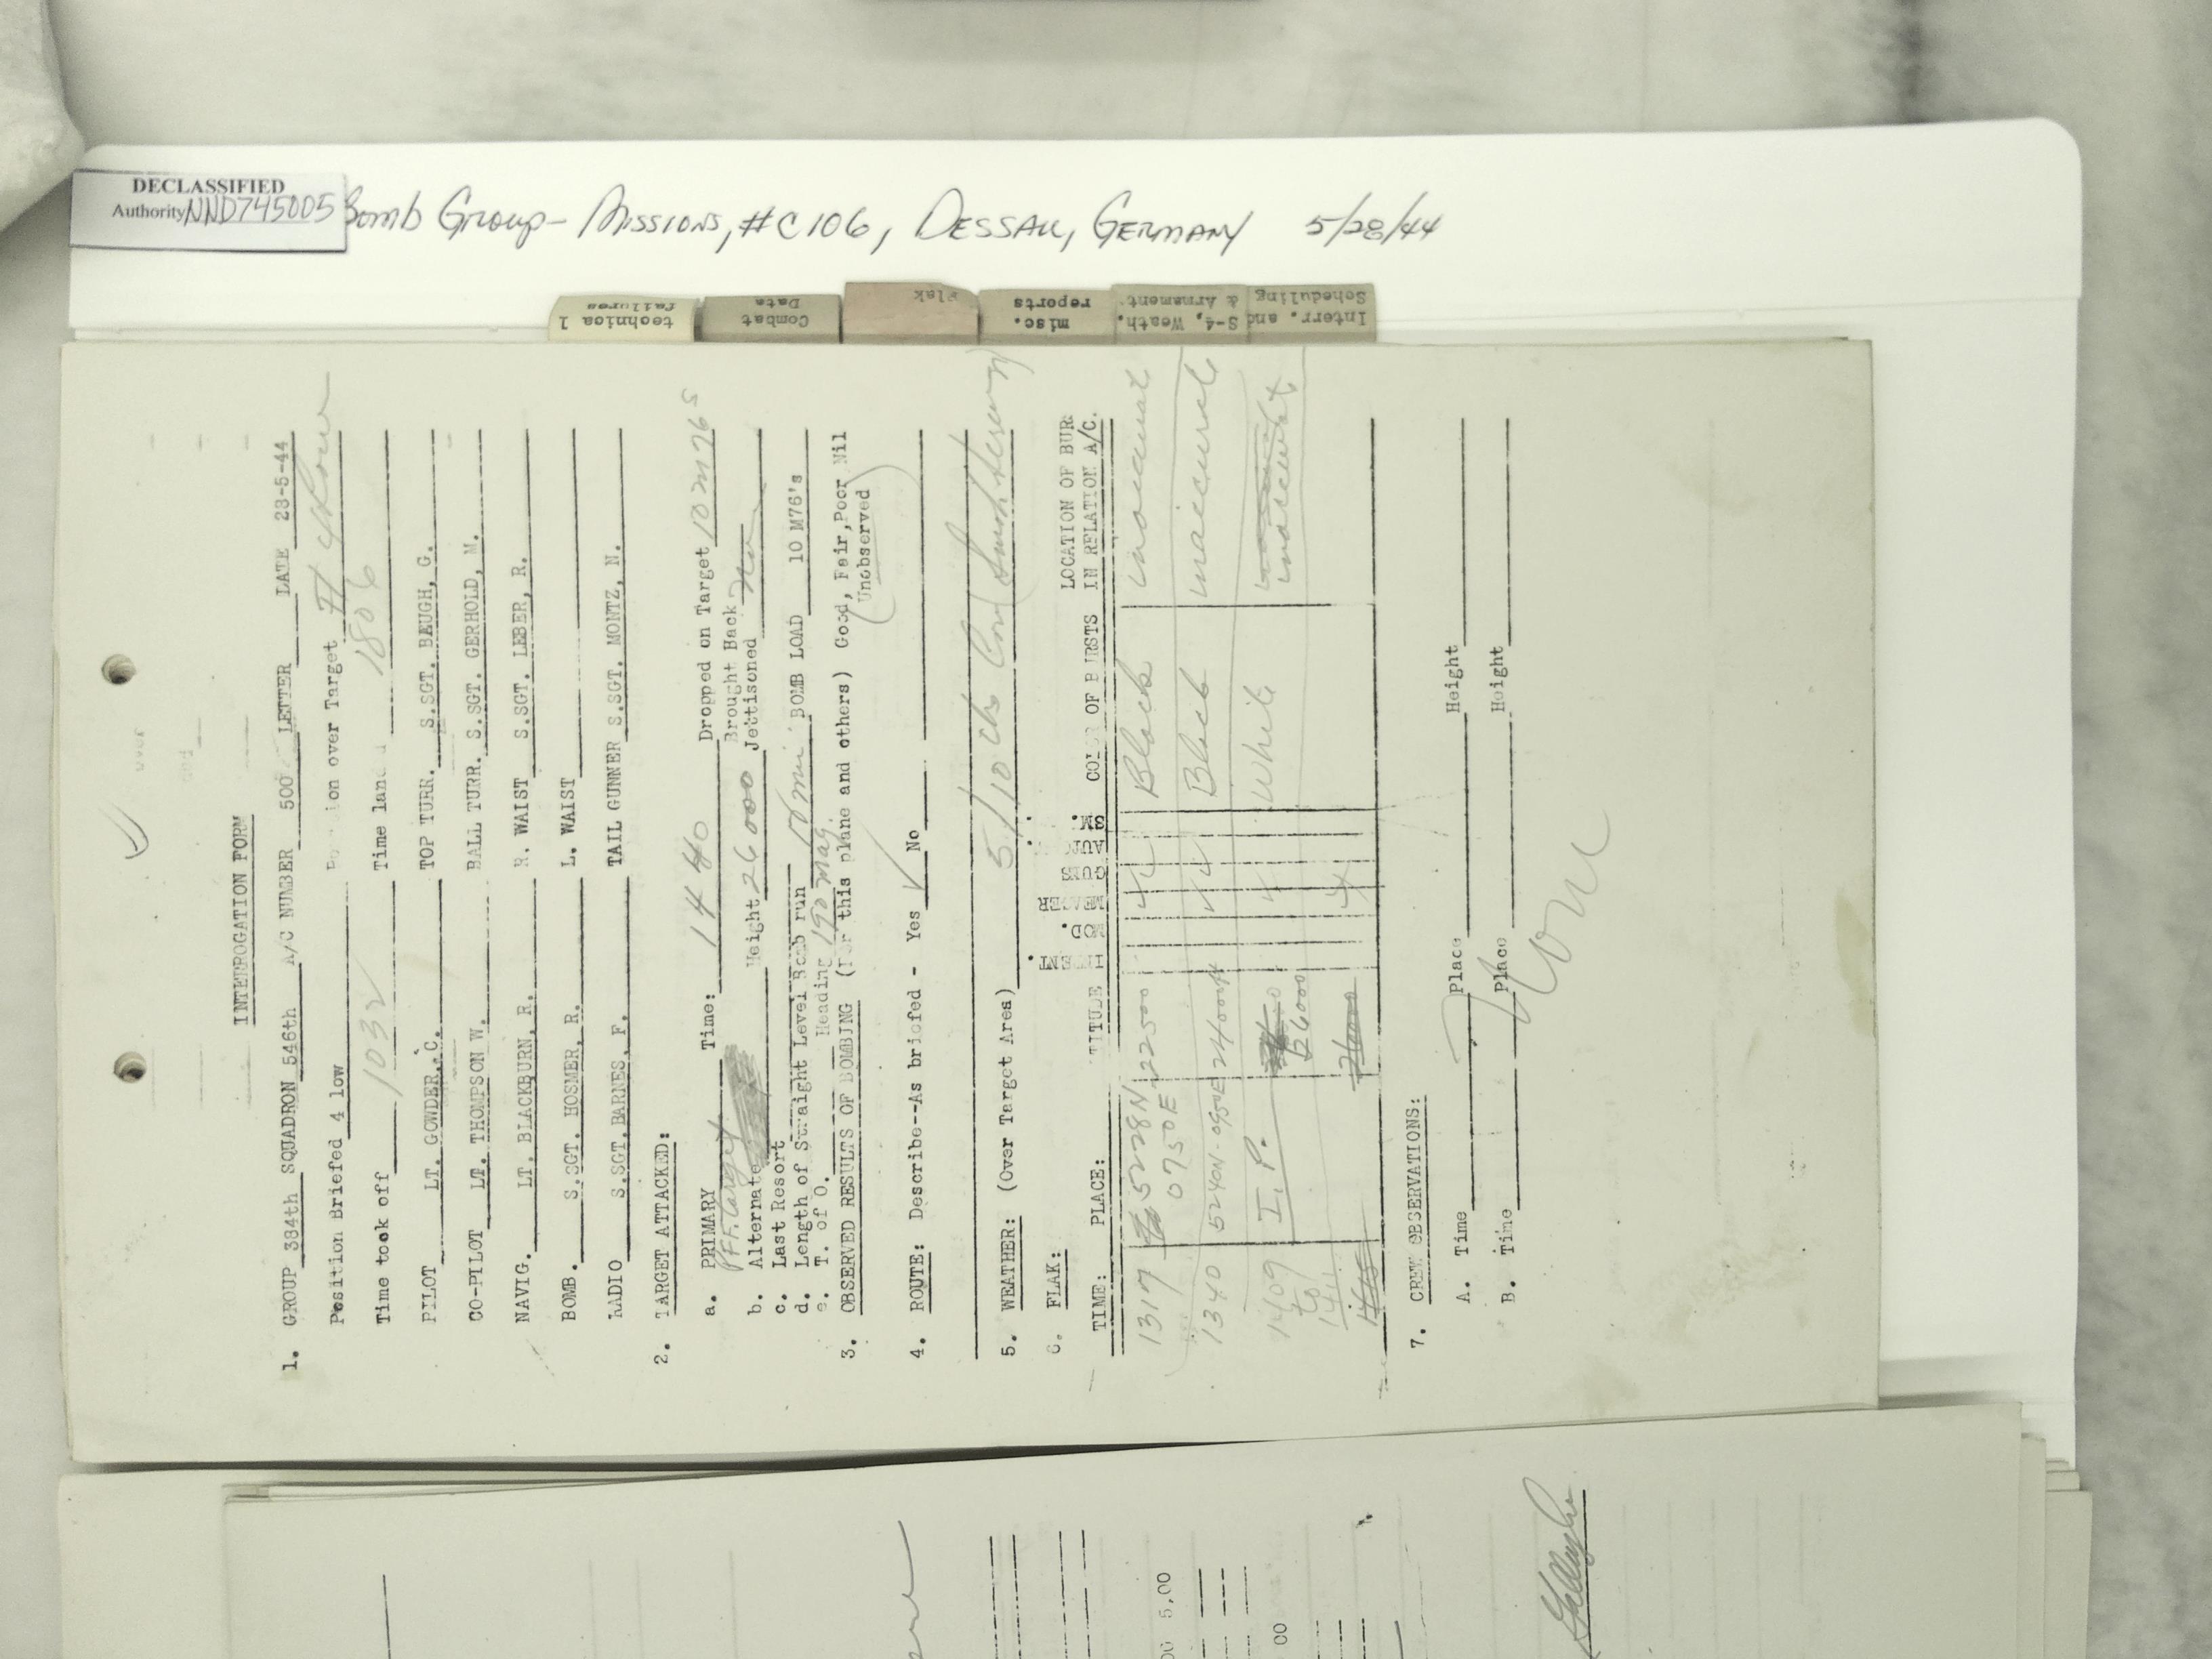 DECLASSIFIED
Authority NND745005
Bomb Group - Missions, #C106, Dessau, Germany 5/28/44
technical failures
Combat Data
Flak
misc. reports
S-4, Weath. & Armament
Interr. and Scheduling
INTERROGATION FORM
1. GROUP 384th SQUADRON 546th A/C NUMBER 500 LETTER DATE 28-5-44
Position Briefed 4 low on over Target # 4 Low
Time took off 1032 Time land 1806
PILOT LT. GOWDER, C. TOP TURR. S.SGT. BEUGH, G.
CO-PILOT LT. THOMPSON W. BALL TURR. S.SGT. GERHOLD, M.
NAVIG. LT. BLACKBURN, R. R. WAIST S.SGT. LEBER, R.
BOMB. S.SGT. HOSMER, R. L. WAIST
RADIO S.SGT. BARNES, F. TAIL GUNNER S.SGT. MONTZ, N.
2. TARGET ATTACKED:
a. PRIMARY Time: 1440 Dropped on Target 10 M76s
PFF target Brought Back
b. Alternate Height 26000 Jettisoned
c. Last Resort
d. Length of Straight Level Bomb run 10 min BOMB LOAD 10 M76's
e. T. of O. Heading 190 mag
3. OBSERVED RESULTS OF BOMBING (For this plane and others) Good, Fair, Poor Nil
(Unobserved)
4. ROUTE: Describe--As briefed - Yes ✓ No
5. WEATHER: (Over Target Area) 5/10ths
6. FLAK:
TIME: PLACE: TITUDE INTENT. MOD. MEAGER GUNS AUTO SM. COLOR OF BURSTS LOCATION OF BUR IN RELATION A/C.
1317 5228N 0750E 22500 Black inaccurate
1340 5240N-0950E 24000 Black inaccurate
1409 to 1411 I.P. 26000 White inaccurate
1415 26000
7. CREW OBSERVATIONS:
A. Time Place Height
B. Time Place Height
None
5.00
00